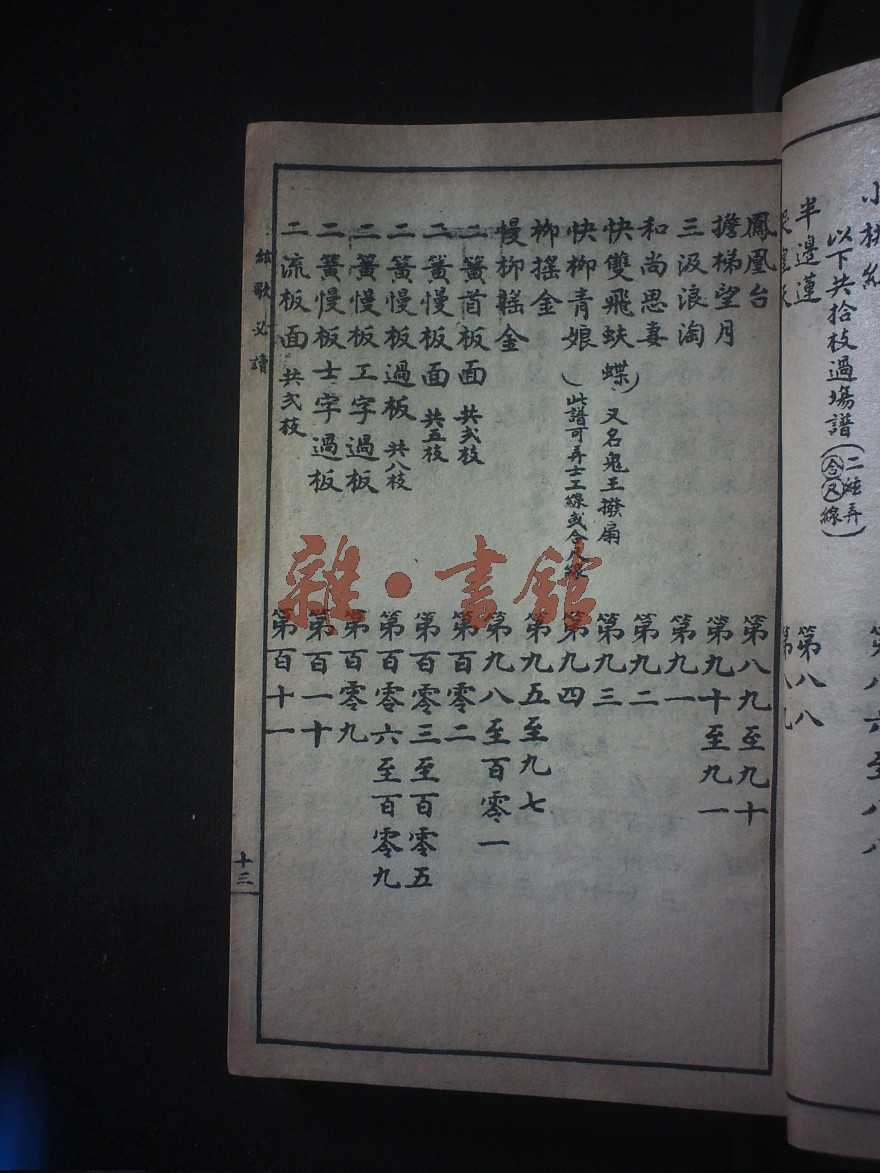 以下共拾枝過場譜(二絃弄合又線)
半邊蓮 第八八
鳳凰台 第八九至九十
擔梯望月 第九十至九一
三汲浪淘 第九一
和尚思妻 第九二
快雙飛蚨蝶) 又名鬼王撥扇 第九三
快柳青娘(此譜可弄士工線或合尺線 第九四
柳搖金 第九五至九七
慢柳䚻金 第九八至百零一
二簧首板面 共弍枝 第百零二
二簧慢板面 共五枝 第百零三至百零五
二簧慢板過板 共八枝 第百零六至百零九
二簧慢板工字過板 第百零九
二簧慢板士字過板 第百一十
二流板面 共弍枝 第百十一
絃歌必讀
十三
雜·書館